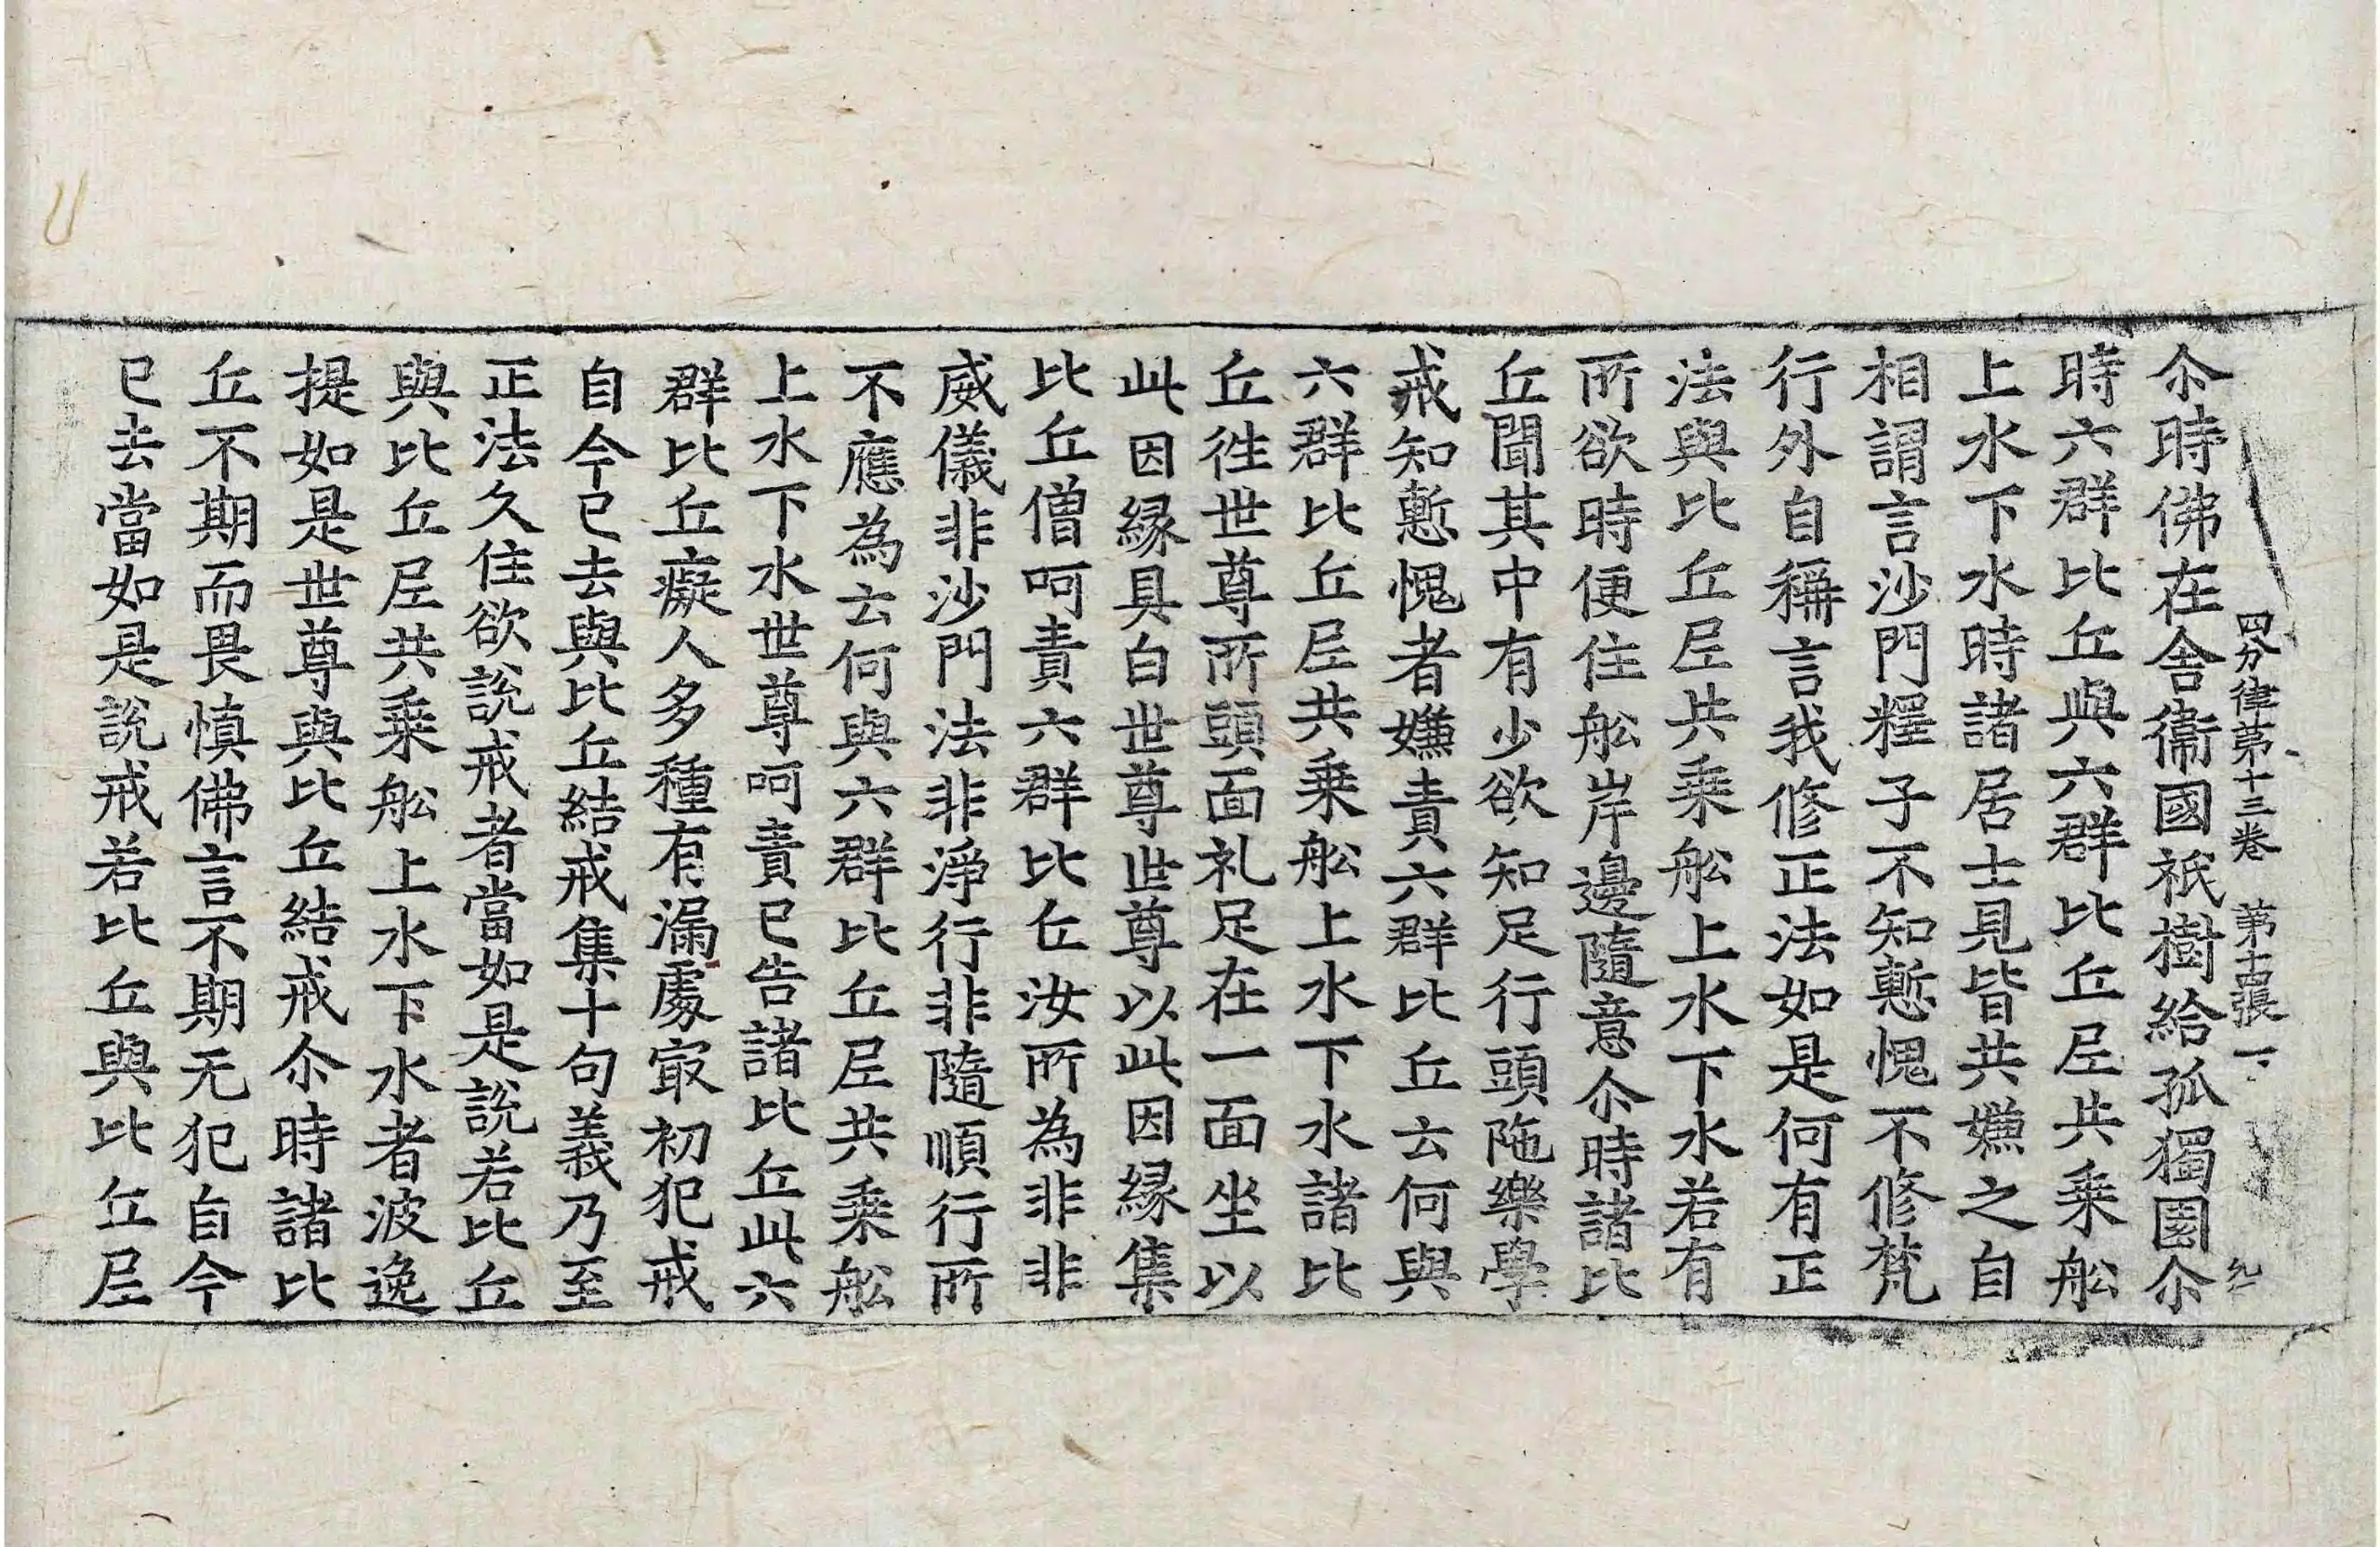 四分律苐十三卷　第十四張　一、
尒時佛在舍衞國祇樹給孤獨園尒
時六群比丘與六群比丘尼共乗舩
上水下水時諸居士見皆共嫌之自
相謂言沙門釋子不知慙愧不修梵
行外自稱言我修正法如是何有正
法與比丘尼共乗舩上水下水若有
所欲時便住舩岸邊隨意尒時諸比
丘聞其中有少欲知足行頭陁樂學
戒知慙愧者嫌責六群比丘云何與
六群比丘尼共乗舩上水下水諸比
丘徃世尊所頭面礼足在一面坐以
此因縁具白世尊世尊以此因縁集
比丘僧呵責六群比丘汝所為非非
威儀非沙門法非淨行非隨順行所
不應為云何與六群比丘尼共乗舩
上水下水世尊呵責已告諸比丘此六
群比丘癡人多種有漏處㝡初犯戒
自今已去與比丘結戒集十句義乃至
正法久住欲說戒者當如是說若比丘
與比丘尼共乗舩上水下水者波逸
提如是世尊與比丘結戒尒時諸比
丘不期而畏慎佛言不期无犯自今
已去當如是說戒若比丘與比丘尼